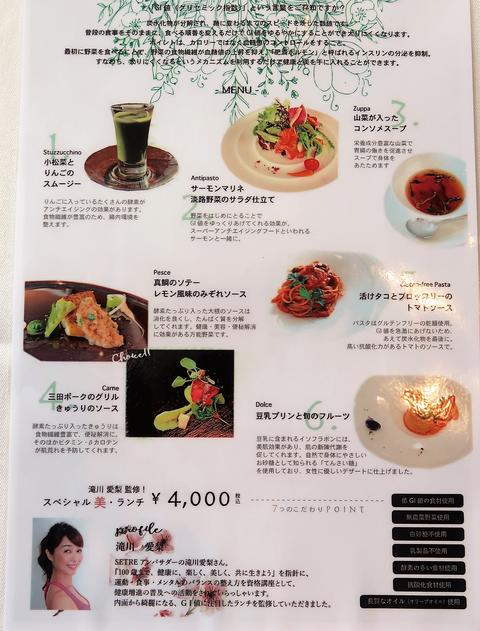 GI値（グリセミック指数）」という言葉をご存知ですか？
炭水化物が分解され、糖に変わるまでのスピードを現した数値です。
普段の食事をそのままに、食べる順番を変えるだけでGI値をゆるやかにすることができ太りにくくなります。
ポイントは、カロリーではなく血糖値のコントロールをすること。
最初に野菜を食べることで、野菜の食物繊維が血糖値の上昇を抑え、「肥満ホルモン」と呼ばれるインスリンの分泌を抑制。
すなわち、太りにくくなるというメカニズムを利用するだけで健康と美を手に入れることができます。
MENU
1
Stuzzucchino
小松菜と
りんごの
スムージー
りんごに入っているたくさんの酵素が
アンチエイジングの効果があります。
食物繊維が豊富のため、腸内環境を
整えます。
2
Antipasto
サーモンマリネ
淡路野菜のサラダ仕立て
野菜をはじめにとることで
GI値をゆっくりあげてくれる効果が。
スーパーアンチエイジングフードといわれる
サーモンと一緒に。
3.
Zuppa
山菜が入った
コンソメスープ
栄養成分豊富な山菜で
胃腸の働きを促進させ
スープで身体を
あたためます
Pesce
真鯛のソテー
レモン風味のみぞれソース
酵素たっぷり入った大根のソースは
消化を良くし、たんぱく質を分解
してくれます。健康・美容・便秘解消
に効果がある万能野菜です。
Gluten-free Pasta
活けタコとブロッコリーの
トマトソース
パスタはグルテンフリーの乾麺使用。
GI値を急激にあげないため、
あえて炭水化物を最後に。
高い抗酸化力があるトマトのソースで。
4
Carne
三田ポークのグリル
きゅうりのソース
酵素たっぷり入ったきゅうりは
食物繊維豊富で、便秘解消に。
そのほかビタミン・βカロテン
が肌荒れを予防してくれます。
6.
Dolce
豆乳プリンと旬のフルーツ
豆乳に含まれるイソフラボンには、
美肌効果があり、肌の新陳代謝を
促してくれます。自然で身体にやさしい
お砂糖として知られる「てんさい糖」
を使用しており、女性に優しいデザートに仕上げました。
滝川 愛梨 監修！
スペシャル 美・ランチ ¥ 4,000 税込
7つのこだわりPOINT
低GI値の食材使用
無農薬野菜使用
白砂糖不使用
乳製品不使用
酵素の多い食材使用
抗酸化食材使用
良質なオイル（オリーブオイル）使用
profile
滝川 愛梨
SETREアンバサダーの滝川愛梨さん。
「100歳まで、健康に、楽しく、美しく、共に生きよう」を指針に、
運動・食事・メンタルのバランスの整え方を資格講座として、
健康増進の普及への活動をされていらっしゃいます。
内面から綺麗になる、GI値に注目したランチを監修していただきました。